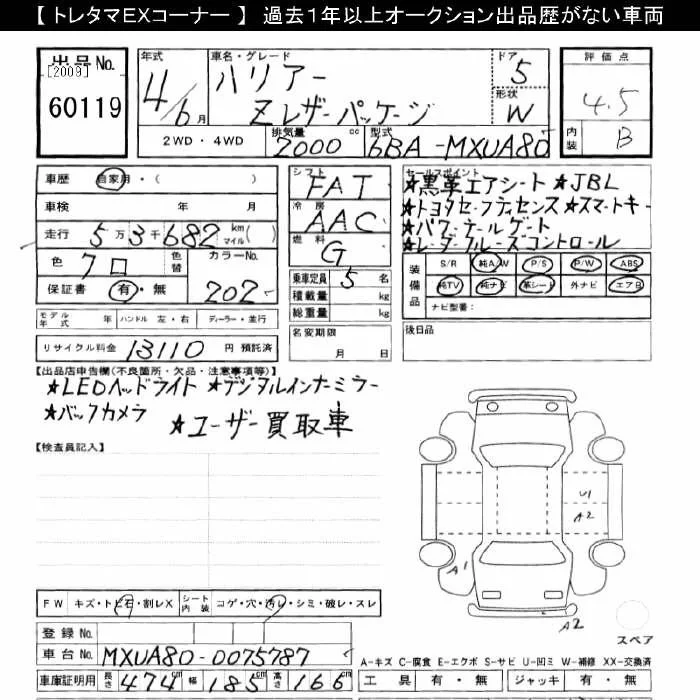 【 トレタマEXコーナー 】 過去1年以上オークション出品歴がない車両
出品No.
[2009]
60119
年式
4/6月
車名・グレード
ハリアー
Zレザーパッケージ
ドア
5
形状
W
評価点
4.5
内装
B
2WD・4WD
排気量
2000 cc
型式
6BA-MXUA80
車歴 自家用・( )
車検 年 月
走行 5万3千682 km マイル( )
色 クロ 色替 カラーNo.
保証書 有・無 202
モデル年式 年 ハンドル 左・右 ディーラー・並行
リサイクル料金 13110 円 預託済
シフト
FAT
冷房
AAC
燃料
G
乗車定員 5 名
積載量 kg
総重量 kg
名変期限
月 日
セールスポイント
★黒革エアシート ★JBL
★トヨタセーフティセンス ★スマートキー
★パワーテールゲート
★レーダークルーズコントロール
装備品
S/R 純A/W P/S P/W ABS
純TV 純ナビ 革シート 外ナビ エアB
ナビ型番:
後日品
【出品店申告欄(不良箇所・欠品・注意事項等)】
★LEDヘッドライト ★デジタルインナーミラー
★バックカメラ ★ユーザー買取車
【検査員記入】
U1
A2
A1
A2
スペア
FW キズ・トビ石・割レX シート内装 コゲ・穴・汚レ・シミ・破レ・スレ
登録No.
車台No. MXUA80-0075787
車庫証明用 長さ 474cm 幅 185cm 高さ 166cm
A-キズ C-腐食 E-エクボ S-サビ U-凹ミ W-補修 XX-交換済
工具 有・無 ジャッキ 有・無